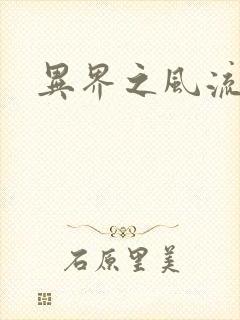 異界之風流
石原里美